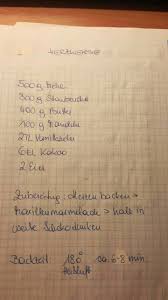 500 g Mehl
300 g Staubzucker
400 g Butter
200 g Mandeln
2TL Vanillezucker
6EL Kakao
2 Eier
Zubereitung: Herzen backen
Marillenmarmelade > halb in
weiße Schokolade
Backzeit: 180° ca. 6-8 min
Heißluft